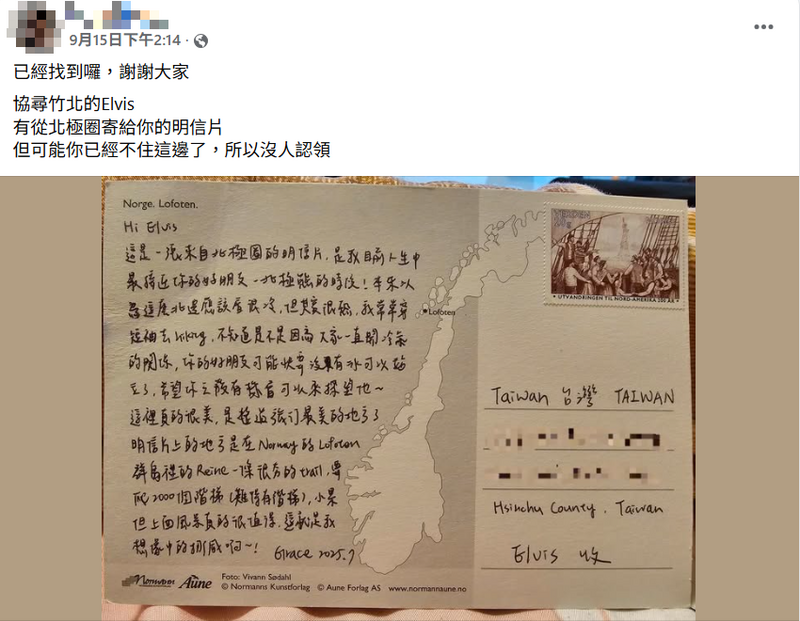 9月15日下午2:14
已經找到囉，謝謝大家
協尋竹北的Elvis
有從北極圈寄給你的明信片
但可能你已經不住這邊了，所以沒人認領
Norge. Lofoten.
Hi Elvis
這是一張來自北極圈的明信片，是我目前人生中
最接近你的好朋友－北極熊的時候！本來以
為這麼北邊應該會很冷，但其實很熱，我常常穿
短袖去hiking，不知道是不是因為大家一直開冷氣
的關係，你的好朋友可能快要沒有冰可以站
了，希望你之後有機會可以來探望他～
這裡真的很美，是這趟旅行最美的地方了
明信片上的地方是在Norway的Lofoten
群島裡的Reine一條很夯的trail，要
爬2000個階梯（難得有階梯），小累
但上面風景真的很值得，這就是我
想像中的挪威啊～！
Grace 2025.7
Lofoten
NORDEN
UTVANDRINGEN TIL NORD-AMERIKA 150 ÅR
Taiwan 台灣 TAIWAN
Hsinchu County, Taiwan
Elvis 收
Normann Aune
Foto: Vivann Sødahl
© Normanns Kunstforlag © Aune Forlag AS www.normannaune.no